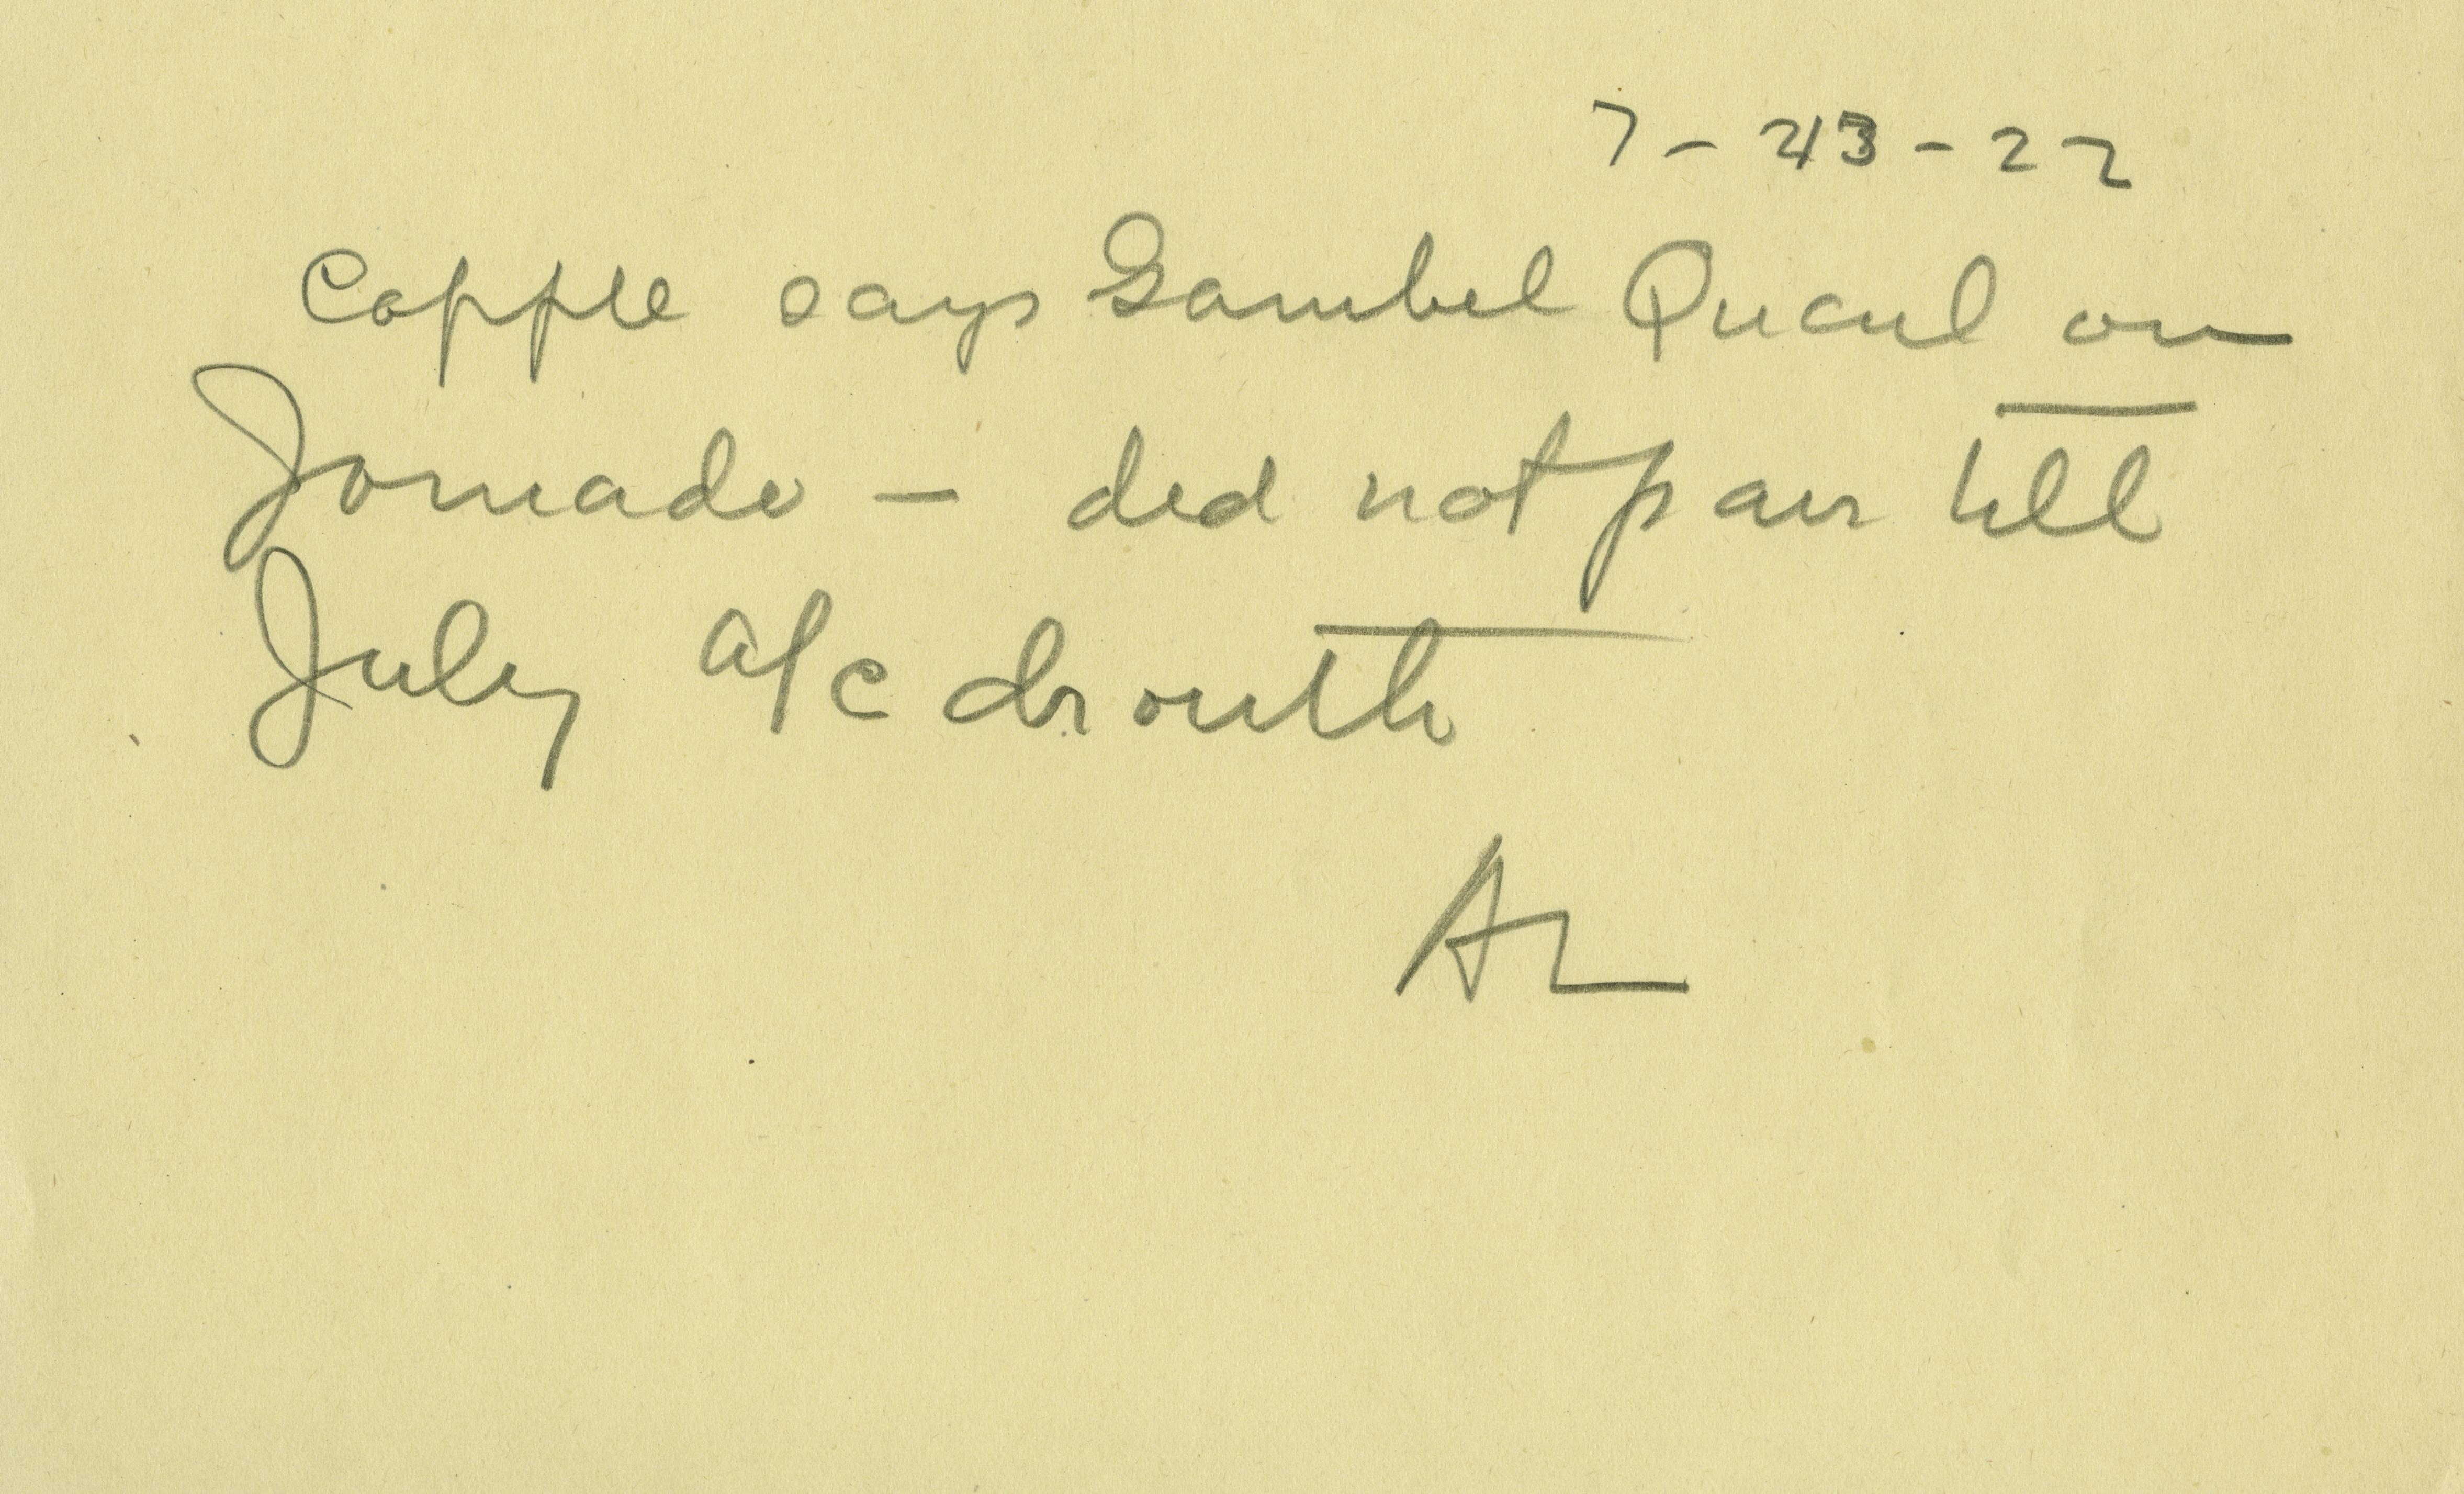 7-23-22
Copple says Gambel Quail on
Jornado - did not pair till
July a/c drouth
AL